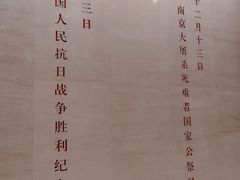 十二月十三日
南京大屠杀死难者国家公祭
三日
国人民抗日战争胜利纪